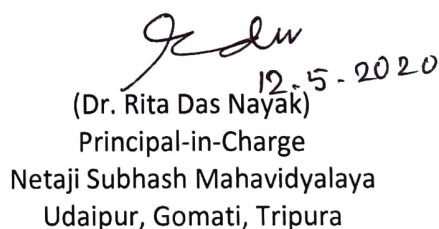 12-5-2020
(Dr. Rita Das Nayak)
Principal-in-Charge
Netaji Subhash Mahavidyalaya
Udaipur, Gomati, Tripura